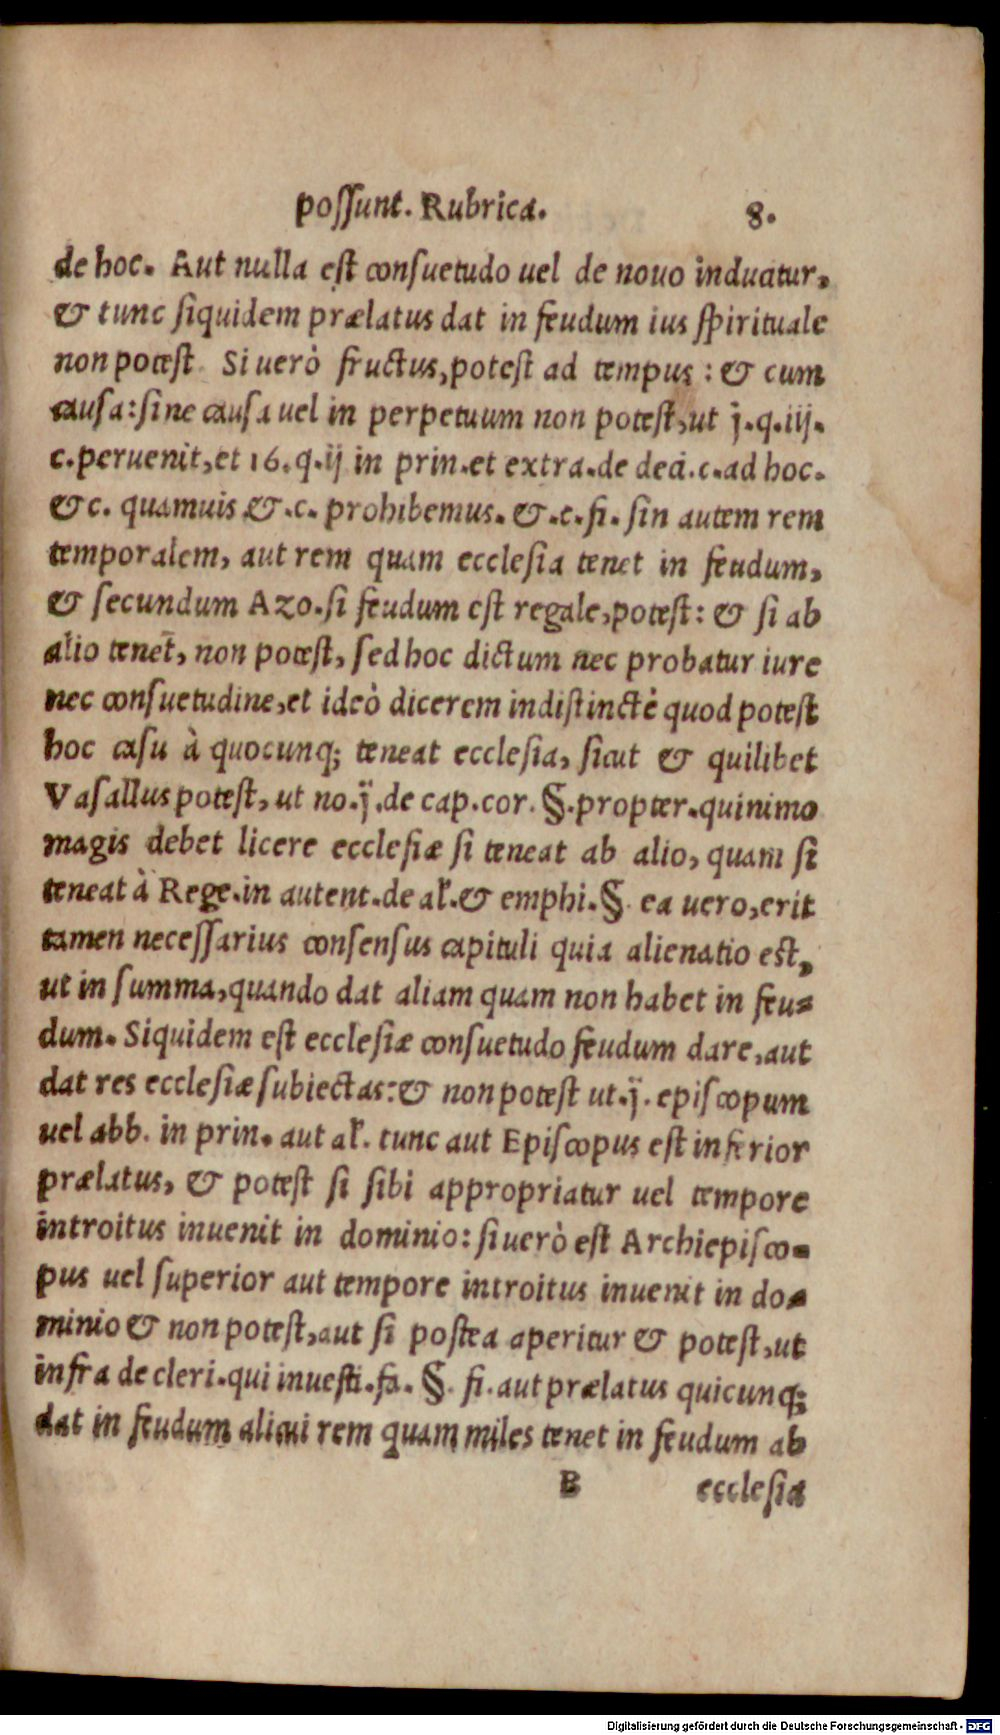 poſſunt. Rubrica. 8.
de hoc. Aut nulla eſt conſuetudo uel de nouo inducatur,
& tunc ſiquidem prælatus dat in feudum ius ſpirituale
non poteſt. Si uerò fructus, poteſt ad tempus: & cum
cauſa: ſine cauſa uel in perpetuum non poteſt, ut j.q.iij.
c. peruenit, et 16.q.ij in prin. et extra. de deci. c. ad hoc.
& c. quamuis &.c. prohibemus. &.c. fi. ſin autem rem
temporalem, aut rem quam eccleſia tenet in feudum,
& ſecundum Azo. ſi feudum eſt regale, poteſt: & ſi ab
alio tenet̄, non poteſt, ſed hoc dictum nec probatur iure
nec conſuetudine, et ideò dicerem indiſtinctè quod poteſt
hoc caſu à quocunq; teneat eccleſia, ſicut & quilibet
Vaſallus poteſt, ut no. ij. de cap. cor. §. propter. quinimo
magis debet licere eccleſiæ ſi teneat ab alio, quam ſi
teneat à Rege. in autent. de al'. & emphi. §. ea uero, erit
tamen neceſſarius conſenſus capituli quia alienatio eſt,
ut in ſumma, quando dat aliam quam non habet in feu-
dum. Siquidem eſt eccleſiæ conſuetudo feudum dare, aut
dat res eccleſiæ ſubiectas: & non poteſt ut. ij. epiſcopum
uel abb. in prin. aut al'. tunc aut Epiſcopus eſt inferior
prælatus, & poteſt ſi ſibi appropriatur uel tempore
introitus inuenit in dominio: ſi uerò eſt Archiepiſco-
pus uel ſuperior aut tempore introitus inuenit in do-
minio & non poteſt, aut ſi poſtea aperitur & poteſt, ut
infra de cleri. qui inueſti. fa. §. fi. aut prælatus quicunq;
dat in feudum alicui rem quam miles tenet in feudum ab
B eccleſia
Digitalisierung gefördert durch die Deutsche Forschungsgemeinschaft - DFG